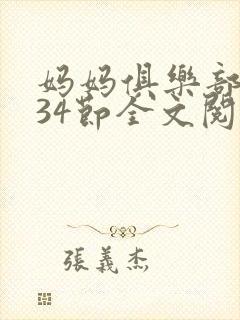 妈妈俱樂部
34節全文閱
張義杰